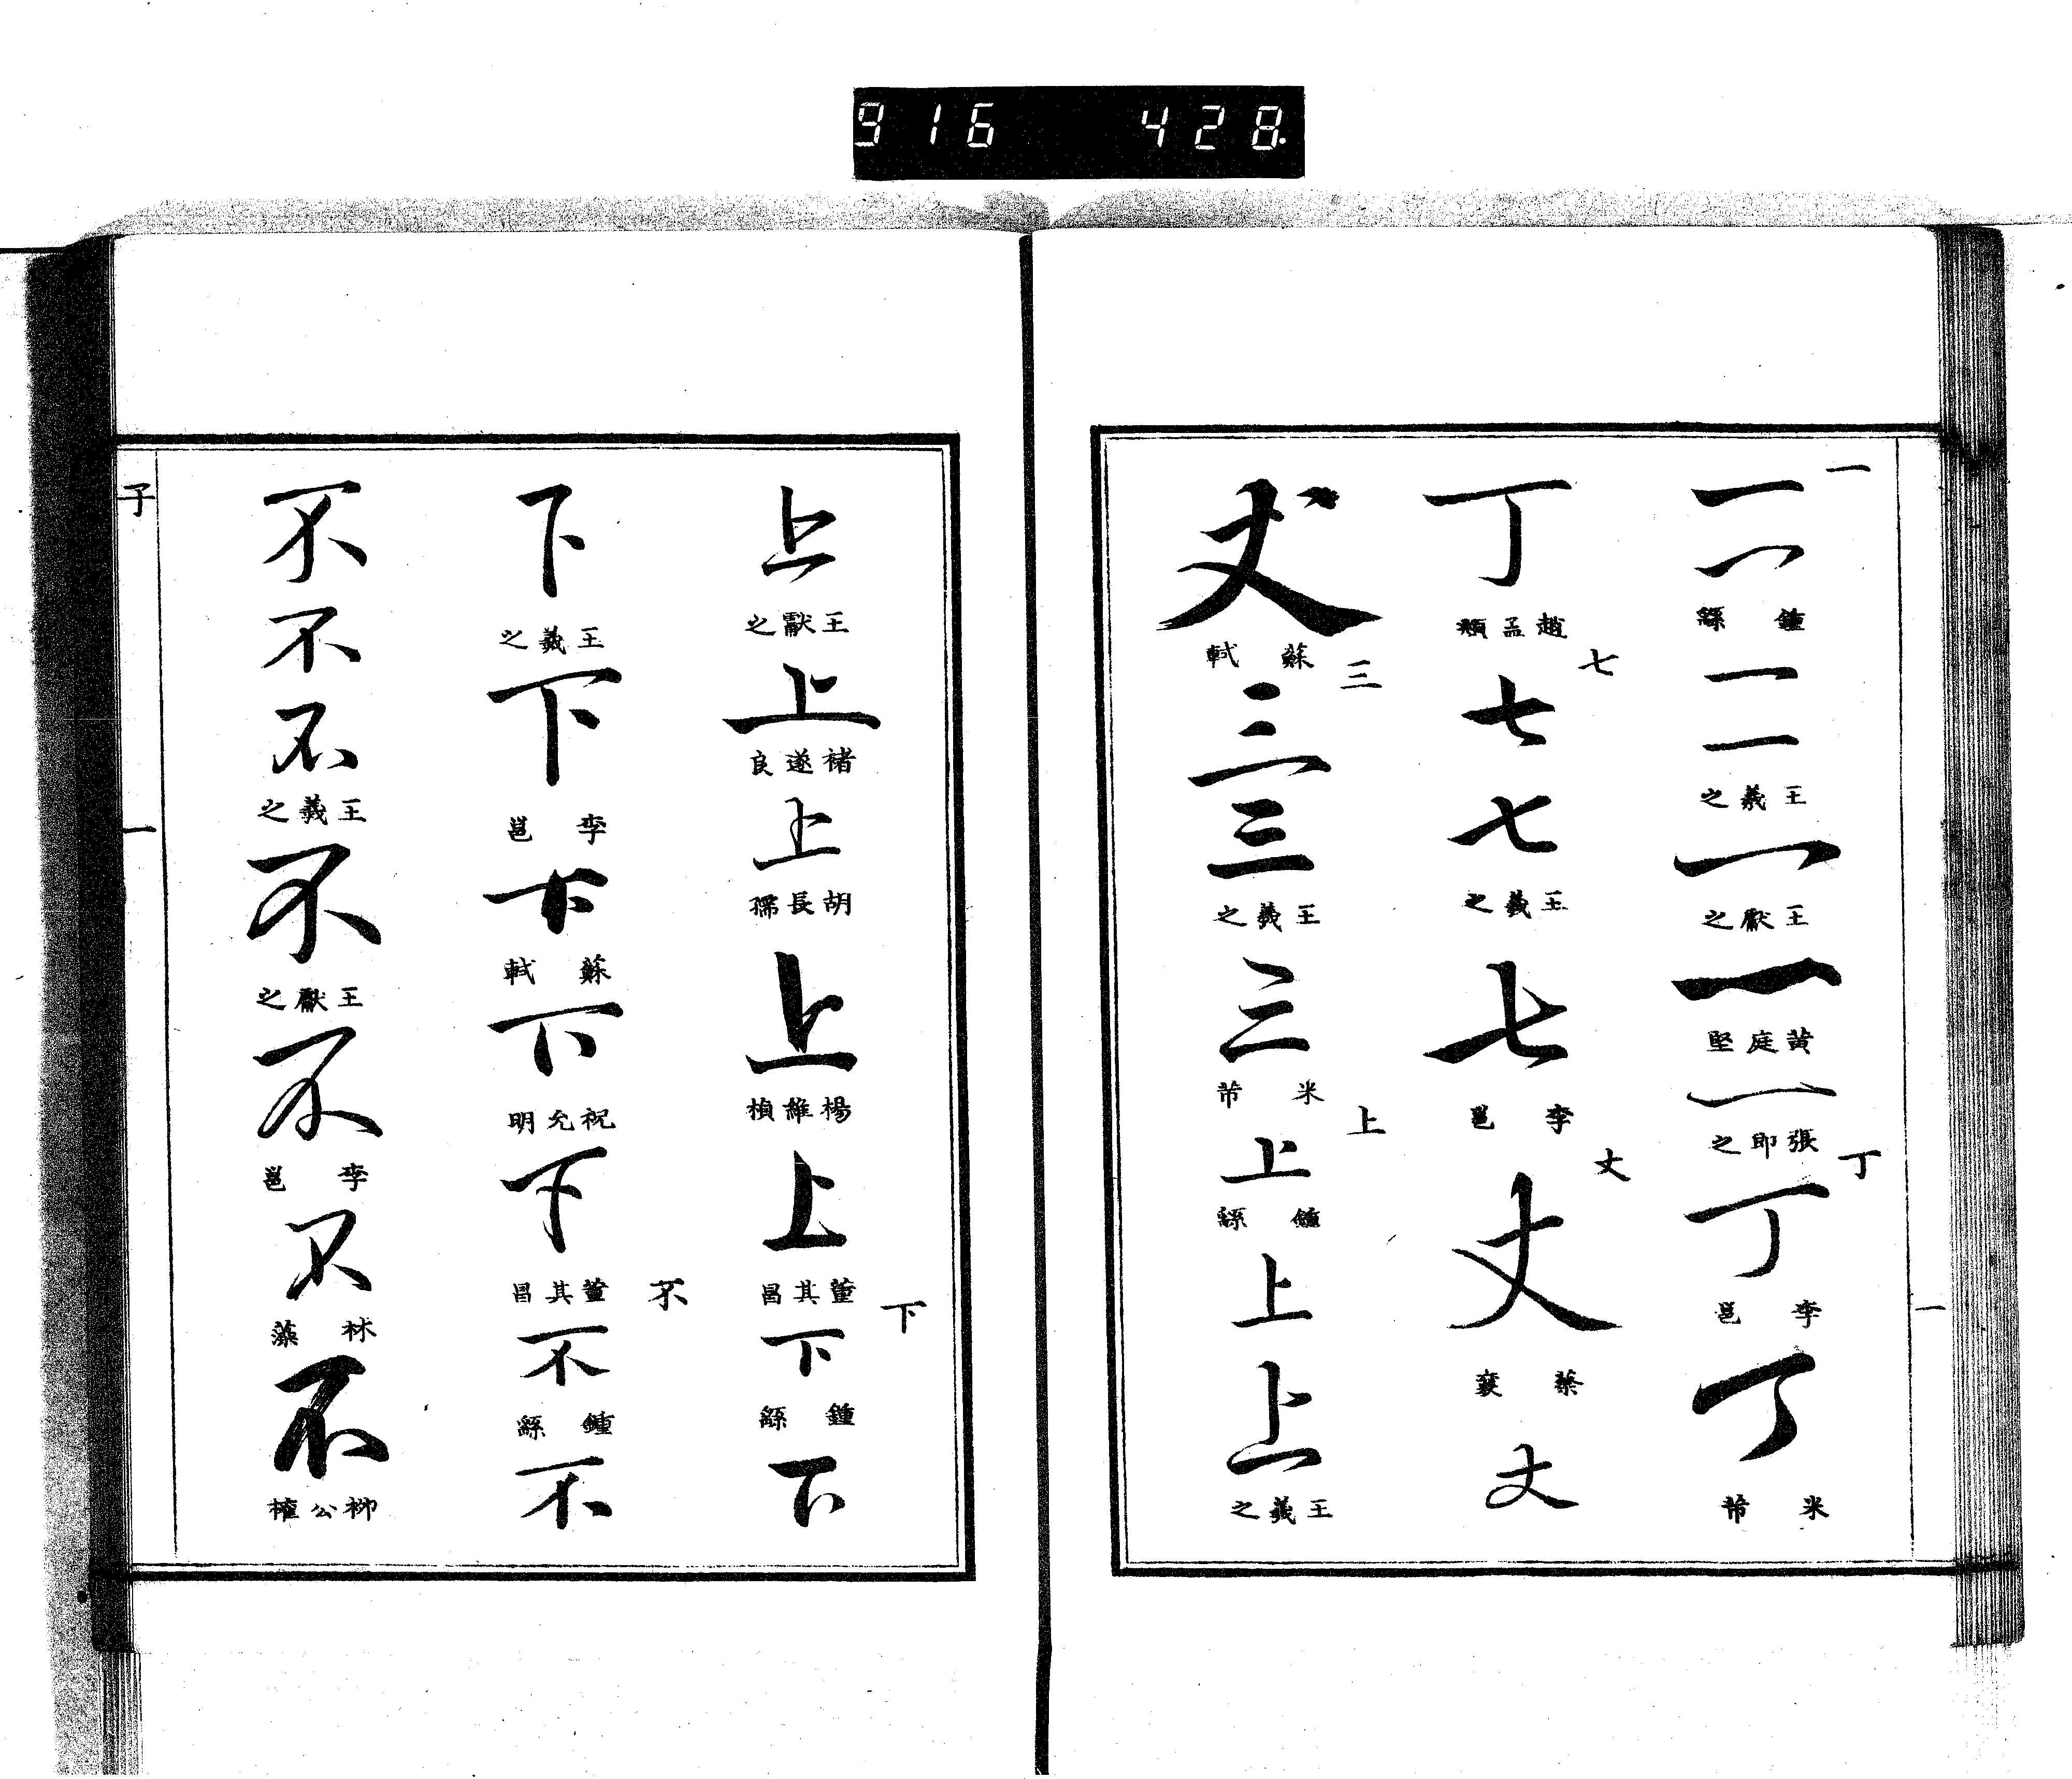 916 428.
一
一
一
鍾繇
一
一
王羲之
一
王獻之
一
黃庭堅
一
張即之
丁
丁
李邕
丁
米芾
一
丁
趙孟頫
七
七
七
王羲之
七
李邕
丈
丈
蔡襄
丈
丈
蘇軾
三
三
三
王羲之
三
米芾
上
上
鍾繇
上
上
王羲之
上
王獻之
上
褚遂良
上
胡長孺
上
楊維楨
上
董其昌
下
下
鍾繇
下
下
王羲之
下
李邕
下
蘇軾
下
祝允明
下
董其昌
不
不
鍾繇
不
不
不
不
王羲之
不
王獻之
不
李邕
不
林藻
不
柳公權
子
一